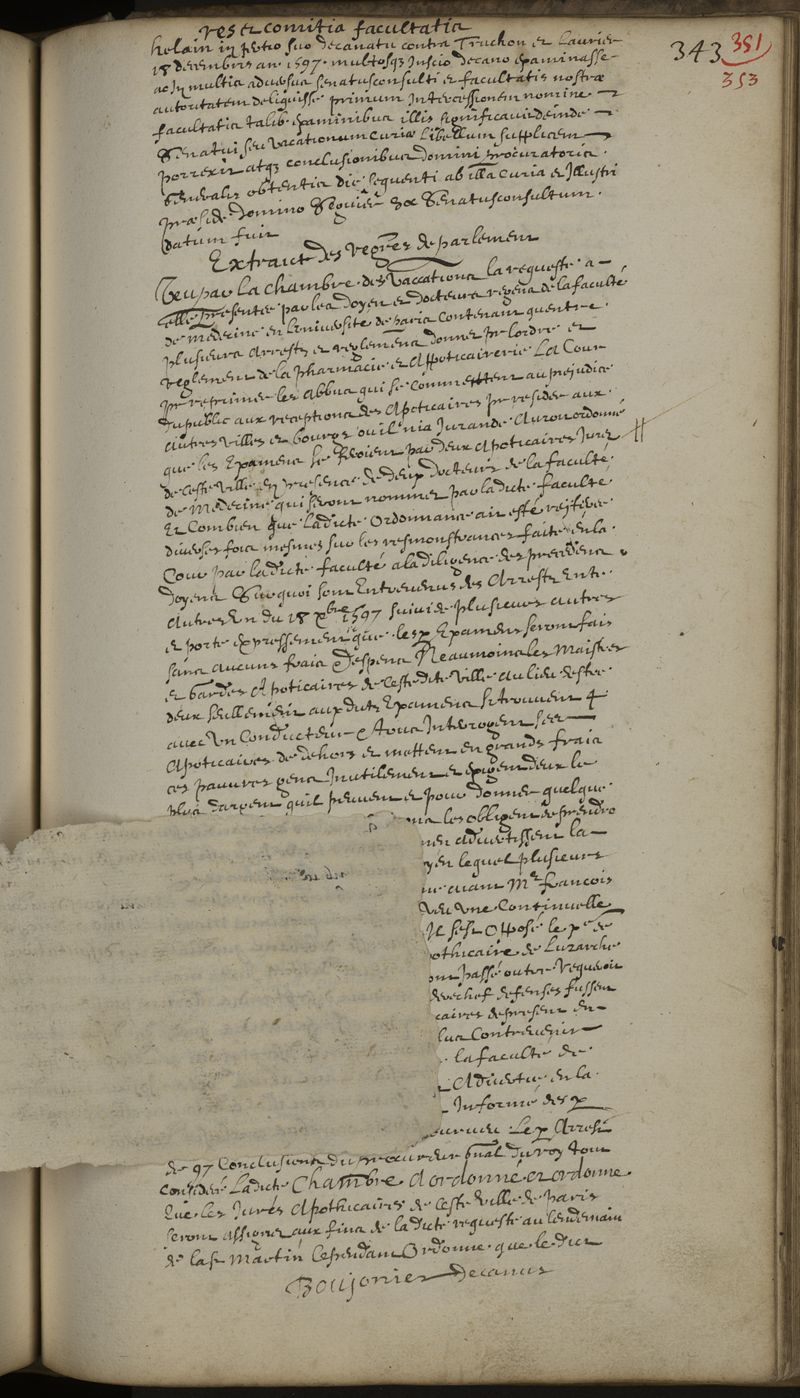 res et comitia facultatis
helain in petro suo decanatu contra Truchon et Laurier
18 decembris an 1597 multosq3 Inscio decano examinasse
ac In multis adversus senatusconsulti et facultatis nostræ
autoritatem deliquisse primum Intercessionem nomine
facultatis talib. examinibus illis significavi deinde
Senatui seu vacationum curiæ libellum supplicem
porrexi atq3 conclusionibus domini procuratoris
Generalis obtentis die sequenti ab illa curia et Illustri
præside domino Seguier hoc Senatusconsultum
datum fuit
Extraict des regres de parlement
Veu par la chambre des Vaccations la requeste a
elle presentée par les doyen et docteurs regens de la faculté
de medecine en Luniversité de paris contenant quentre
plusieurs arrests et reglemens donnez pr lordre et
reglement de la pharmacie et Appoticairerie La Cour
pr reprimer les abbus qui se commettent au prejudice
du public aux receptions des Apoticaires pr resider aux
autres villes et bourgs ou il nia Jurande Auroit ordonné
que les Examens se feroient par deux Apoticaires Jurez
de ceste ville en presence de deux docteurs de la faculté
de Medecine qui seront nommez par ladicte faculté
Et Combien que ladicte Ordonnance ait esté reiterée
diverses fois mesmes sur les remonstrances faites en la
Cour par ladicte faculté a la diligence des precedens
doyens Sur quoi sont Entrevenus des Arrests Entre
autres Un du 18 Xbre 1597 suivi de plusieurs autres
et porte expressement que lesd Examens seront faits
sans aucuns frais Despens Neaumoins les Maistres
et Gardes Apoticaires de ceste dite ville au lieu destre
deux seullement auxdits Examens se trouvent 4
avec un Conducteur & tous Interrogent les
Apoticaires de dehors et mettent en grands frais
ces pauvres gens Inutilement et exigent deux le
plus dargent quil peuvent et pour donner quelque
les obligent de prendre
advertissent la
yen lequel plusieurs
avant Mr francois
veu une Continuelle
Il sest Opposé le pr de
othicaire de Luzarche
ont passé outre requeroit
derechef defenses fussent
caires de present en
lus Contrevenir
la faculté de
Advertir en la
Informé desd
Led Arrest
de 97 Conclusions du procureur gnal du roy tout
consideré Ladicte Chambre a ordonné et ordonne
Que les Jurés Apothicaires de ceste ville de paris
seront assignez aux fins de ladicte requeste au lendemain
de la st Martin Cependant Ordonne que ledict
Boujonier Decanus
343 351
353